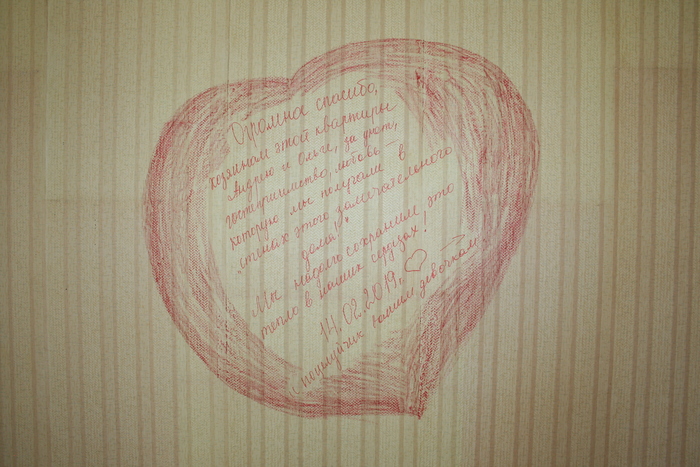 Огромное спасибо,
хозяинам этой квартиры
Андрею и Ольге, за уют,
гостеприимство, любовь –
которую мы получали в
"стенах этого замечательного
дома!"
Мы надолго сохраним это
тепло в наших сердцах!
14.02.2019г.
и поцелуйчик вашим девочкам